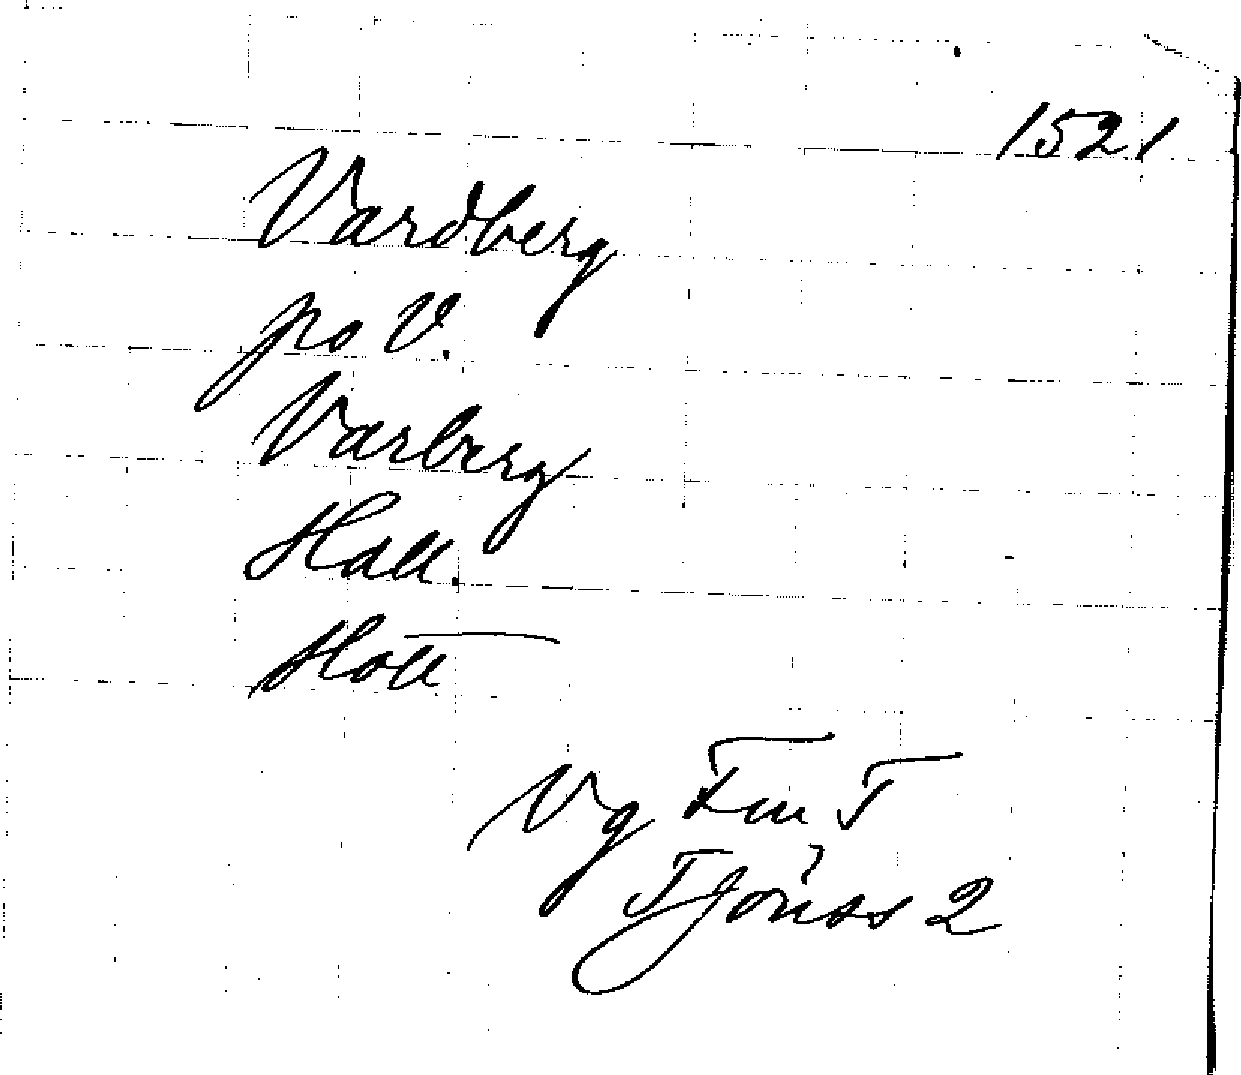 1521
Vardberg
po V.
Varberg
Hall.
Holl
Vg Fin T
Tjönss 2